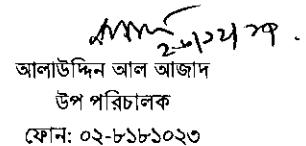 আলাউদ্দিন আল আজাদ
উপ পরিচালক
ফোন: ০২-৮১৮১০২৩